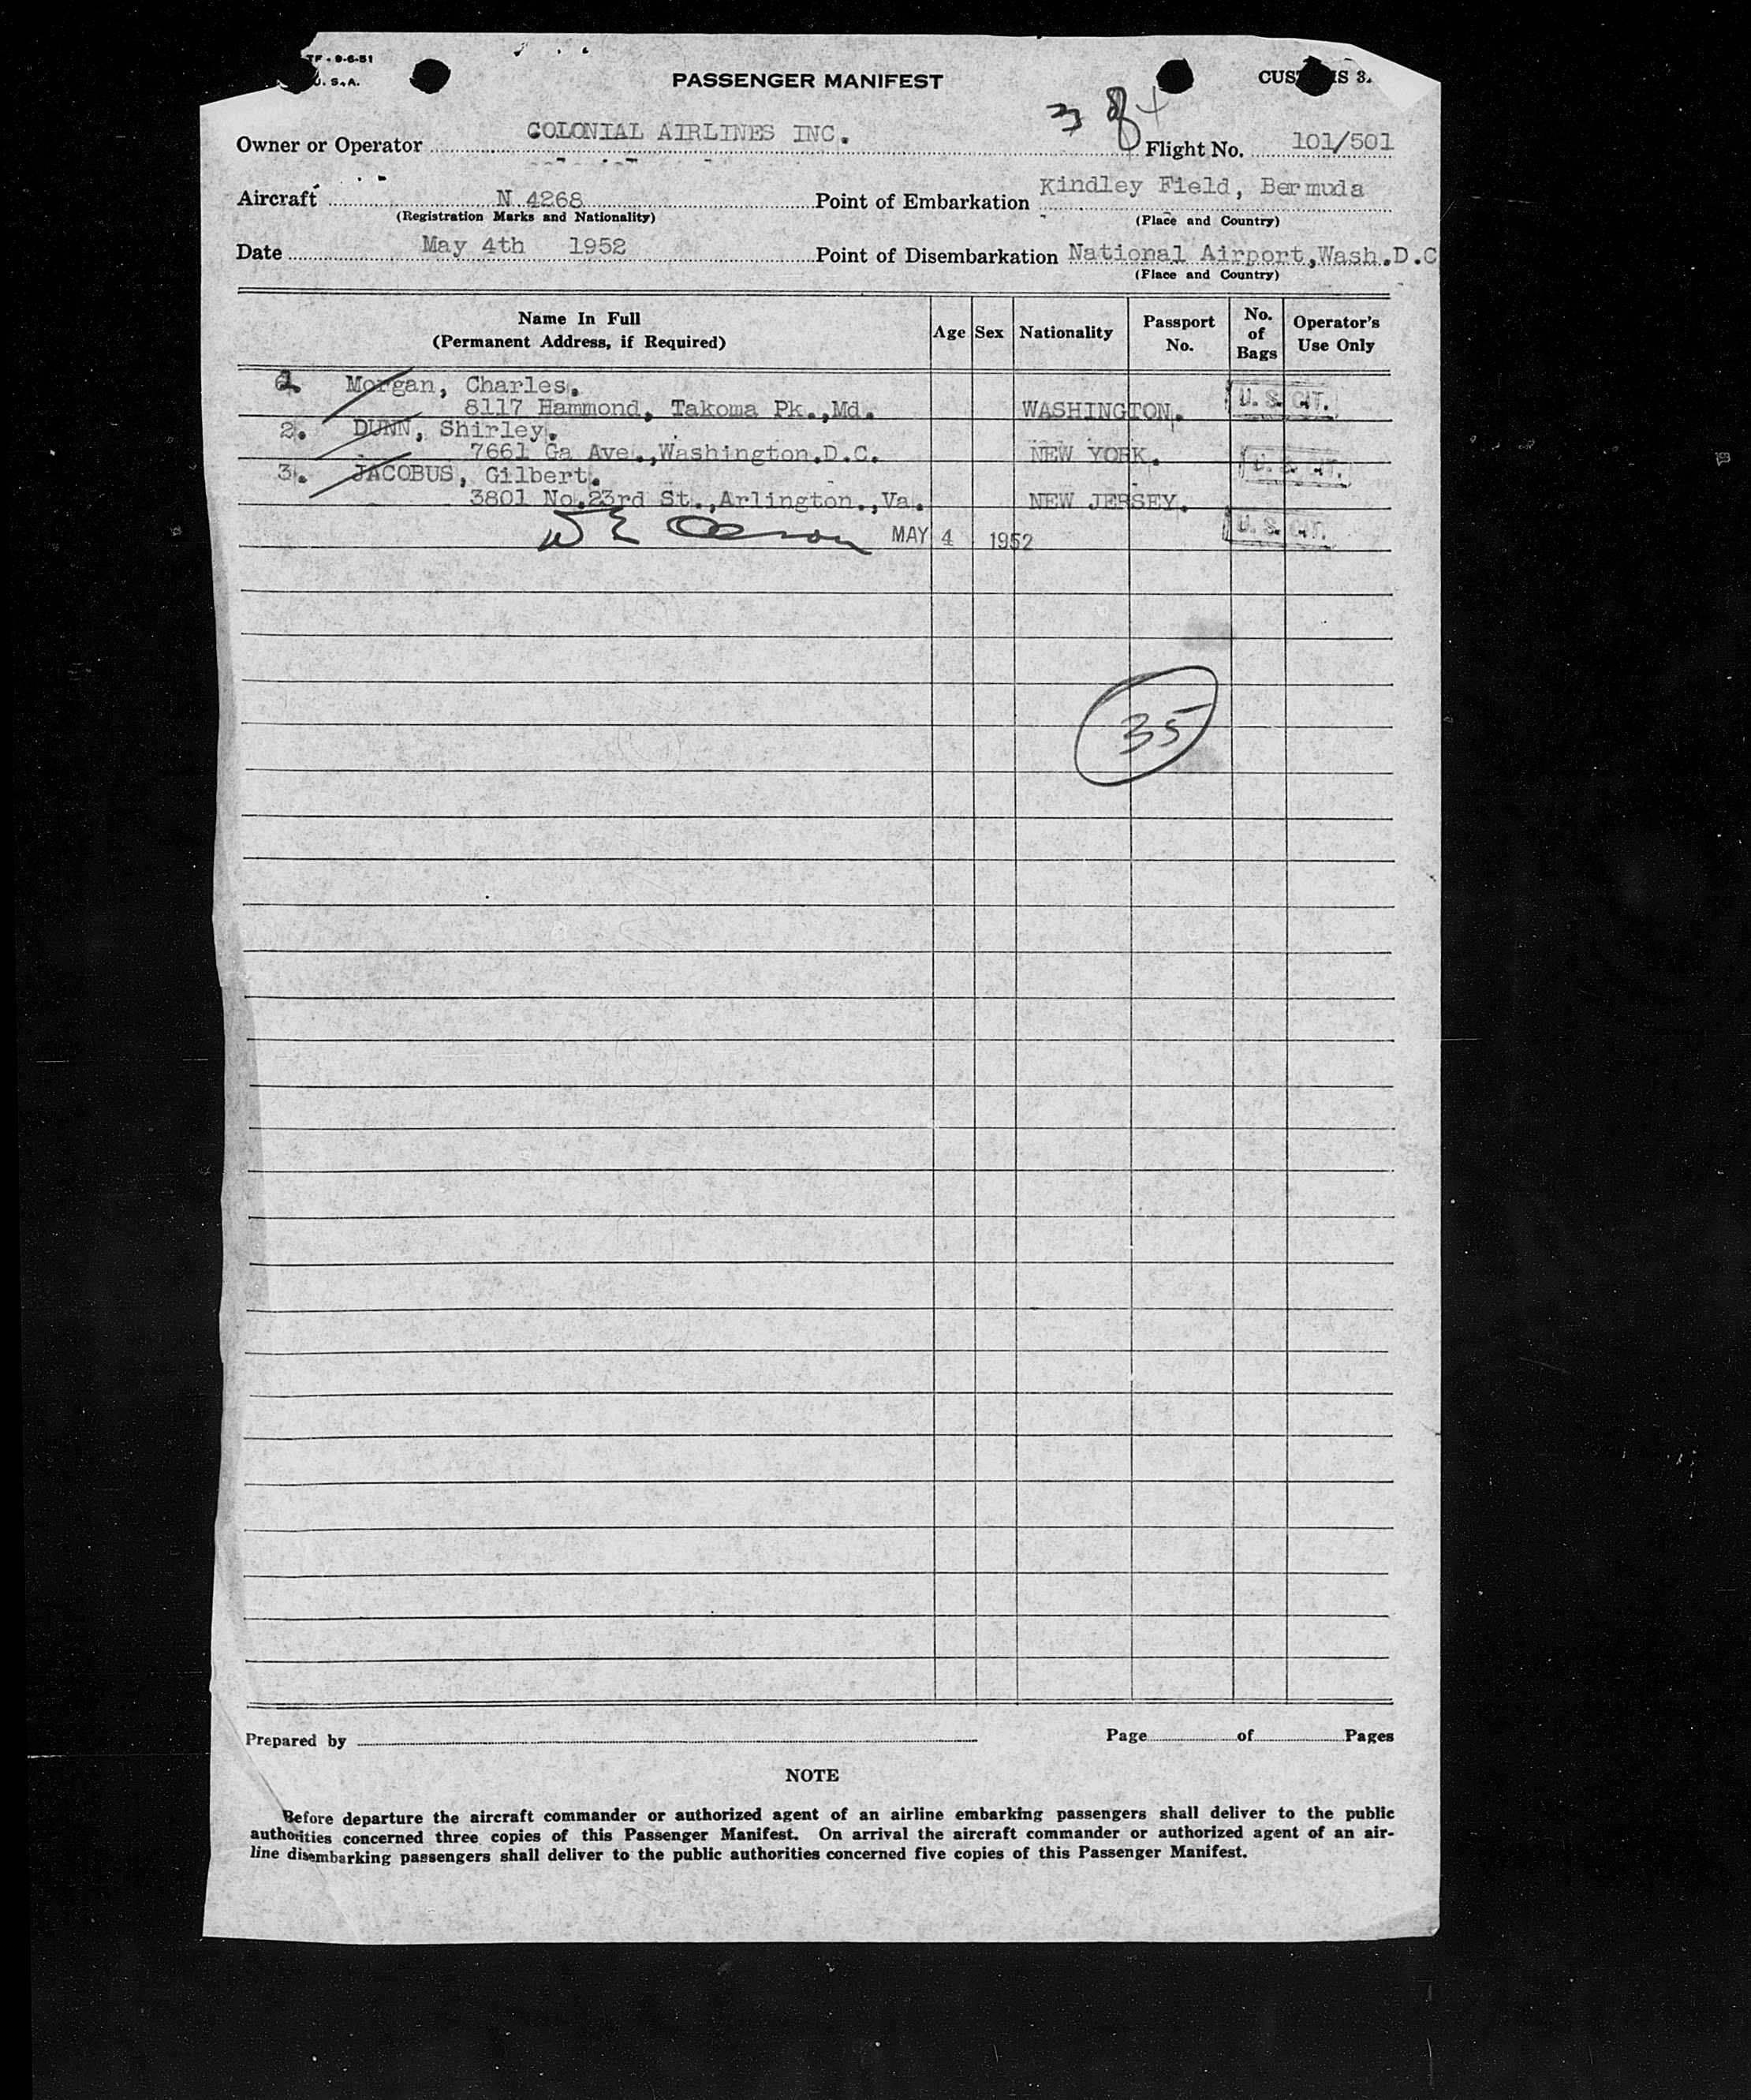 TF - 9-6-51
U. S. A.
PASSENGER MANIFEST
CUSTOMS 3.
3 8
Owner or Operator COLONIAL AIRLINES INC. Flight No. 101/501
Aircraft N 4268 Point of Embarkation Kindley Field, Bermuda
(Registration Marks and Nationality) (Place and Country)
Date May 4th 1952 Point of Disembarkation National Airport,Wash.D.C
(Place and Country)
Name In Full (Permanent Address, if Required) Age Sex Nationality Passport No. No. of Bags Operator's Use Only
1. Morgan, Charles. U. S. CIT.
8117 Hammond, Takoma Pk.,Md. WASHINGTON.
2. DUNN, Shirley.
7661 Ga Ave.,Washington.D.C. NEW YORK. U. S. CIT.
3. JACOBUS, Gilbert.
3801 No.23rd St.,Arlington.,Va. NEW JERSEY.
MAY 4 1952 U. S. CIT.
35
Prepared by Page of Pages
NOTE
Before departure the aircraft commander or authorized agent of an airline embarking passengers shall deliver to the public
authorities concerned three copies of this Passenger Manifest. On arrival the aircraft commander or authorized agent of an air-
line disembarking passengers shall deliver to the public authorities concerned five copies of this Passenger Manifest.